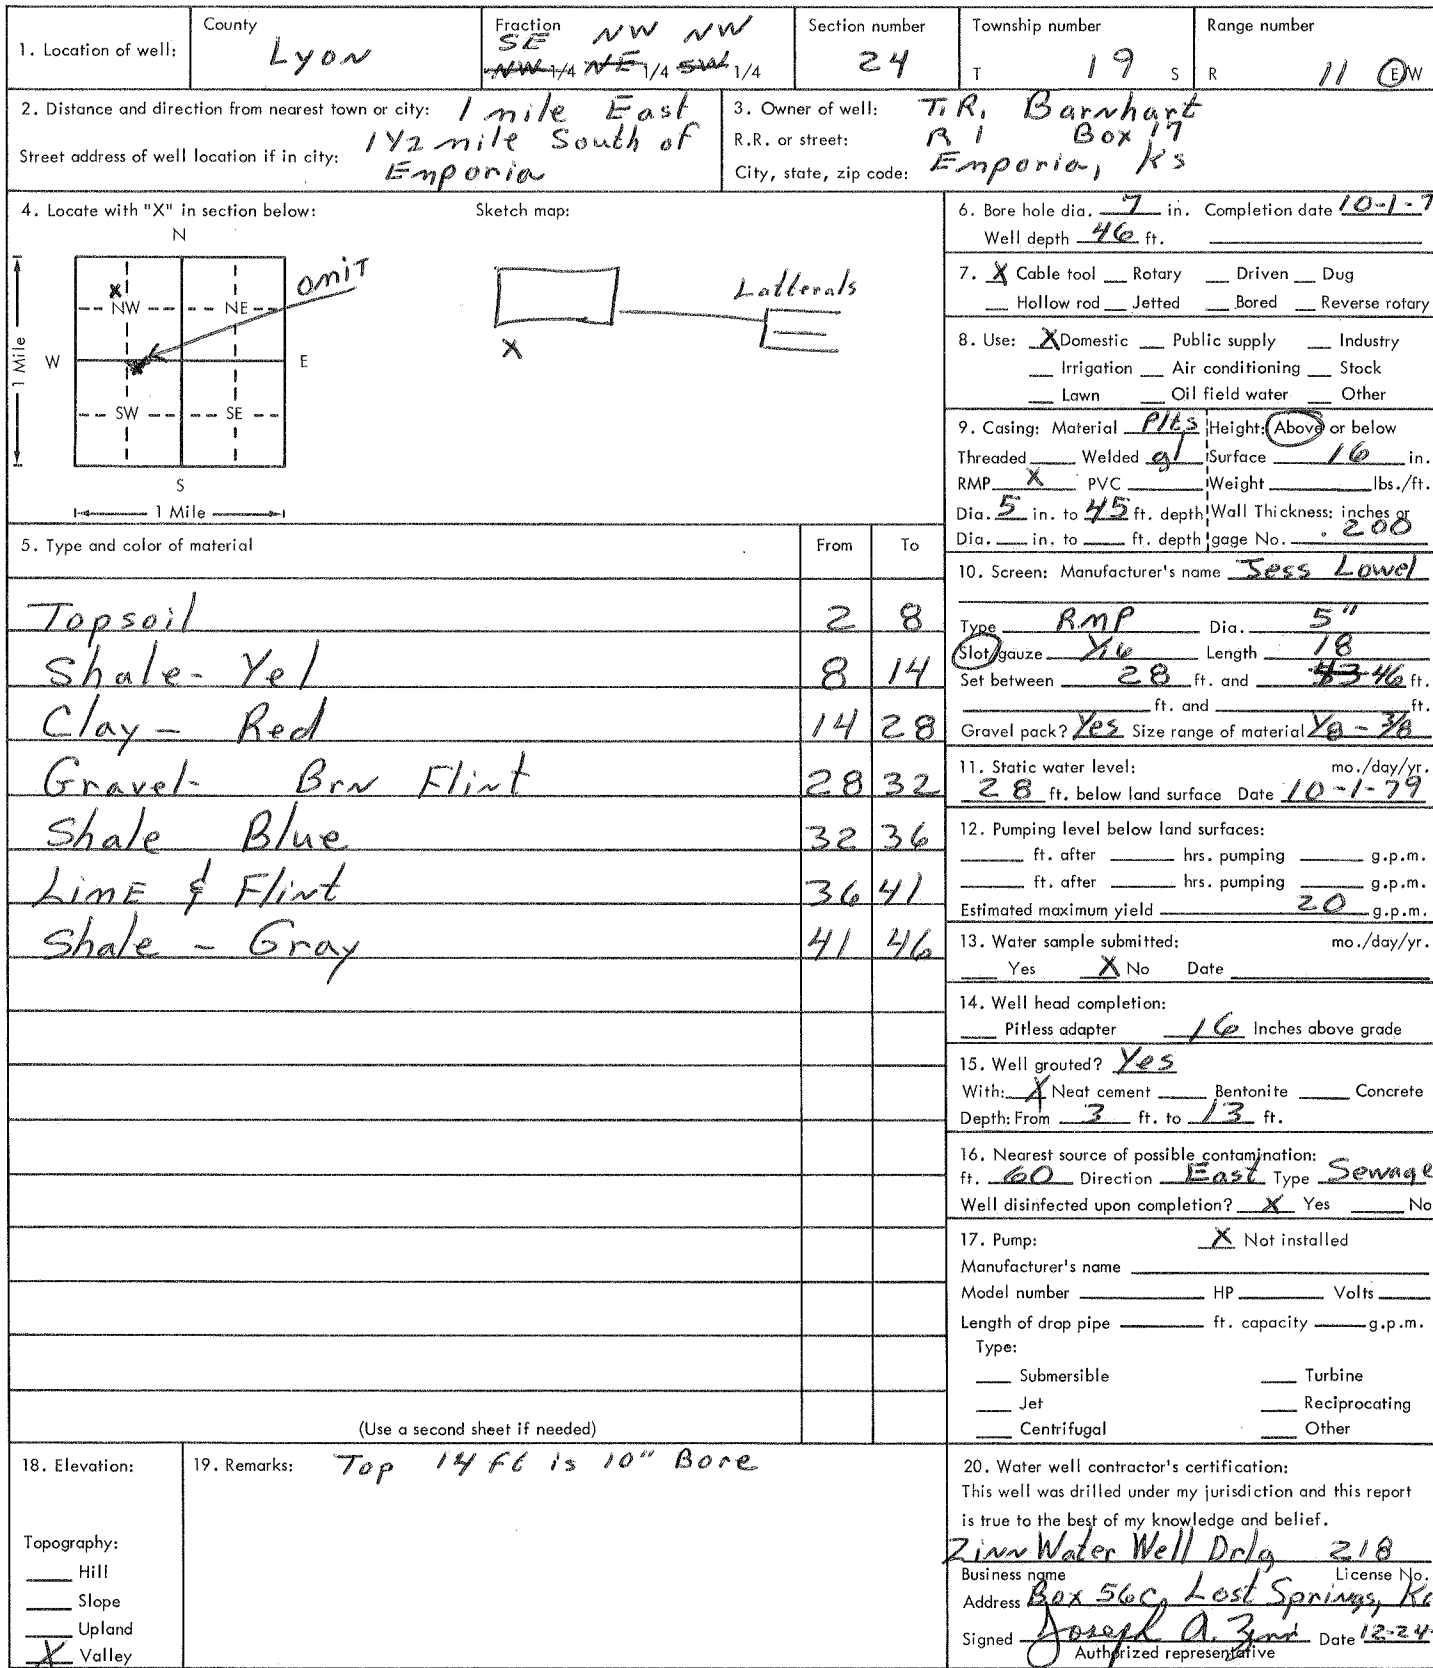 1. Location of well:
County
Lyon
Fraction
SE NW NW
NW 1/4 NE 1/4 SW 1/4
Section number
24
Township number
T 19 S
Range number
R 11 E W
2. Distance and direction from nearest town or city: 1 mile East
1 1/2 mile South of
Street address of well location if in city:
Emporia
3. Owner of well: T.R. Barnhart
R.R. or street: R 1 Box 17
City, state, zip code: Emporia, Ks
4. Locate with "X" in section below:
Sketch map:
N
omit
X
NW NE
W E
SW SE
S
1 Mile
1 Mile
Latterals
X
5. Type and color of material From To
Topsoil 2 8
Shale - Yel 8 14
Clay - Red 14 28
Gravel - Brn Flint 28 32
Shale Blue 32 36
Lime & Flint 36 41
Shale - Gray 41 46
(Use a second sheet if needed)
6. Bore hole dia. 7 in. Completion date 10-1-7
Well depth 46 ft.
7. X Cable tool Rotary Driven Dug
Hollow rod Jetted Bored Reverse rotary
8. Use: X Domestic Public supply Industry
Irrigation Air conditioning Stock
Lawn Oil field water Other
9. Casing: Material Plts Height: Above or below
Threaded Welded gl Surface 16 in.
RMP X PVC Weight lbs./ft.
Dia. 5 in. to 45 ft. depth Wall Thickness: inches or
Dia. in. to ft. depth gage No. .200
10. Screen: Manufacturer's name Jess Lowel
Type RMP Dia. 5"
Slot/gauze 1/16 Length 18
Set between 28 ft. and 43 46 ft.
ft. and ft.
Gravel pack? Yes Size range of material 1/8 - 3/8
11. Static water level: mo./day/yr.
28 ft. below land surface Date 10-1-79
12. Pumping level below land surfaces:
ft. after hrs. pumping g.p.m.
ft. after hrs. pumping g.p.m.
Estimated maximum yield 20 g.p.m.
13. Water sample submitted: mo./day/yr.
Yes X No Date
14. Well head completion:
Pitless adapter 16 Inches above grade
15. Well grouted? Yes
With: X Neat cement Bentonite Concrete
Depth: From 3 ft. to 13 ft.
16. Nearest source of possible contamination:
ft. 60 Direction East Type Sewage
Well disinfected upon completion? X Yes No
17. Pump: X Not installed
Manufacturer's name
Model number HP Volts
Length of drop pipe ft. capacity g.p.m.
Type:
Submersible Turbine
Jet Reciprocating
Centrifugal Other
18. Elevation:
Topography:
Hill
Slope
Upland
X Valley
19. Remarks: Top 14 ft is 10" Bore
20. Water well contractor's certification:
This well was drilled under my jurisdiction and this report
is true to the best of my knowledge and belief.
Zinn Water Well Drlg 218
Business name License No.
Address Box 56C, Lost Springs, Ks
Signed Joseph A. Zinn Date 12-24-
Authorized representative